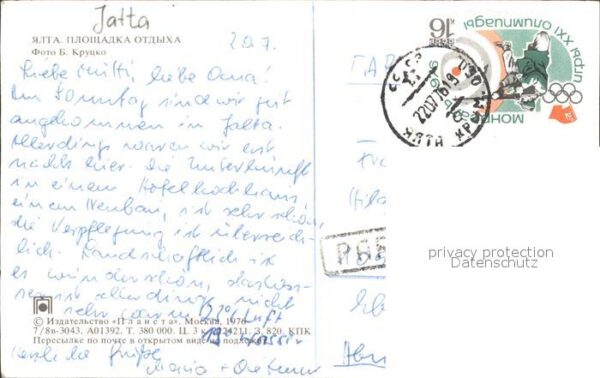 Jalta
ЯЛТА. ПЛОЩАДКА ОТДЫХА
Фото Б. Круцко
20.7.
Liebe Mutti, liebe Oma!
Am Sonntag sind wir gut
angekommen in Jalta.
Allerdings waren wir erst
nachts hier. Die Unterkunft
in einem Hotelhochhaus,
einem Neubau, ist sehr schön,
die Verpflegung ist unterschied-
lich. Landschaftlich ist
es wunderschön, das Was-
ser ist allerdings nicht
sehr warm. 
Luft
Wasser
Herzliche Grüße
Maria + Dietmar
© Издательство «Планета». Москва, 1976
7/8в-3043. А01392. Т. 380 000. Ц. 3 к. З. 820. КПК
Пересылке по почте в открытом виде не подлежит
16
ИГРЫ XXI ОЛИМПИАДЫ
СССР
ЯЛТА
privacy protection
Datenschutz